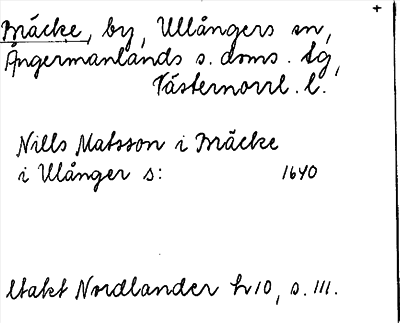 Bräcke, by, Ullångers sn,
Ångermanlands s. doms. tg,
Västernorrl. l.
Nills Matsson i Bräcke
i Ulånger s: 1640
Utakt Nordlander h 10, s. 111.